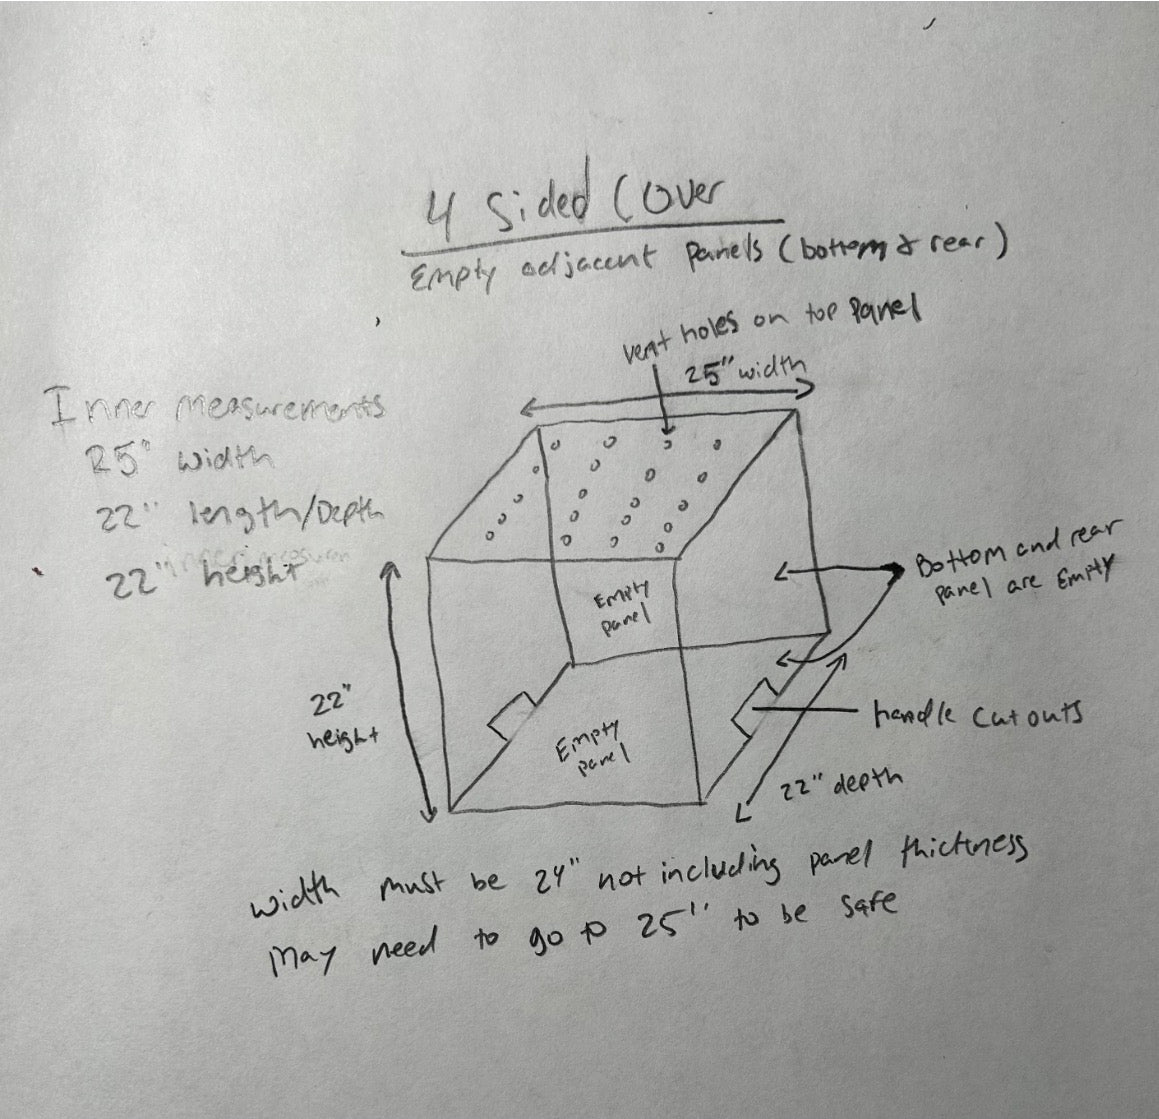 4 Sided Cover
Empty adjacent panels (bottom & rear)
vent holes on top panel
25" width
Inner measurements
25" width
22" length/Depth
22" height
Empty
panel
Bottom and rear
panel are Empty
22"
height
handle cutouts
Empty
panel
22" depth
width must be 24" not including panel thickness
may need to go to 25" to be safe